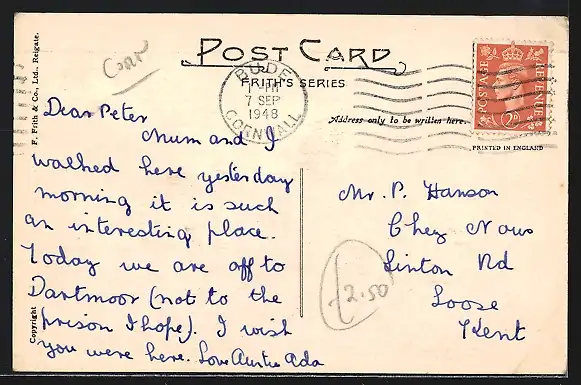 Corn
POST CARD
FRITH'S SERIES
BUDE
7 SEP
1948
CORNWALL
POSTAGE
REVENUE
2D
Address only to be written here.
PRINTED IN ENGLAND
F. Frith & Co., Ltd., Reigate.
Copyright
Dear Peter
Mum and I
walked here yesterday
morning it is such
an interesting place.
Today we are off to
Dartmoor (not to the
prison I hope). I wish
you were here. Love Auntie Ada
Mr. P. Hanson
Chez Nous
Linton Rd
Loose
Kent
£2.50